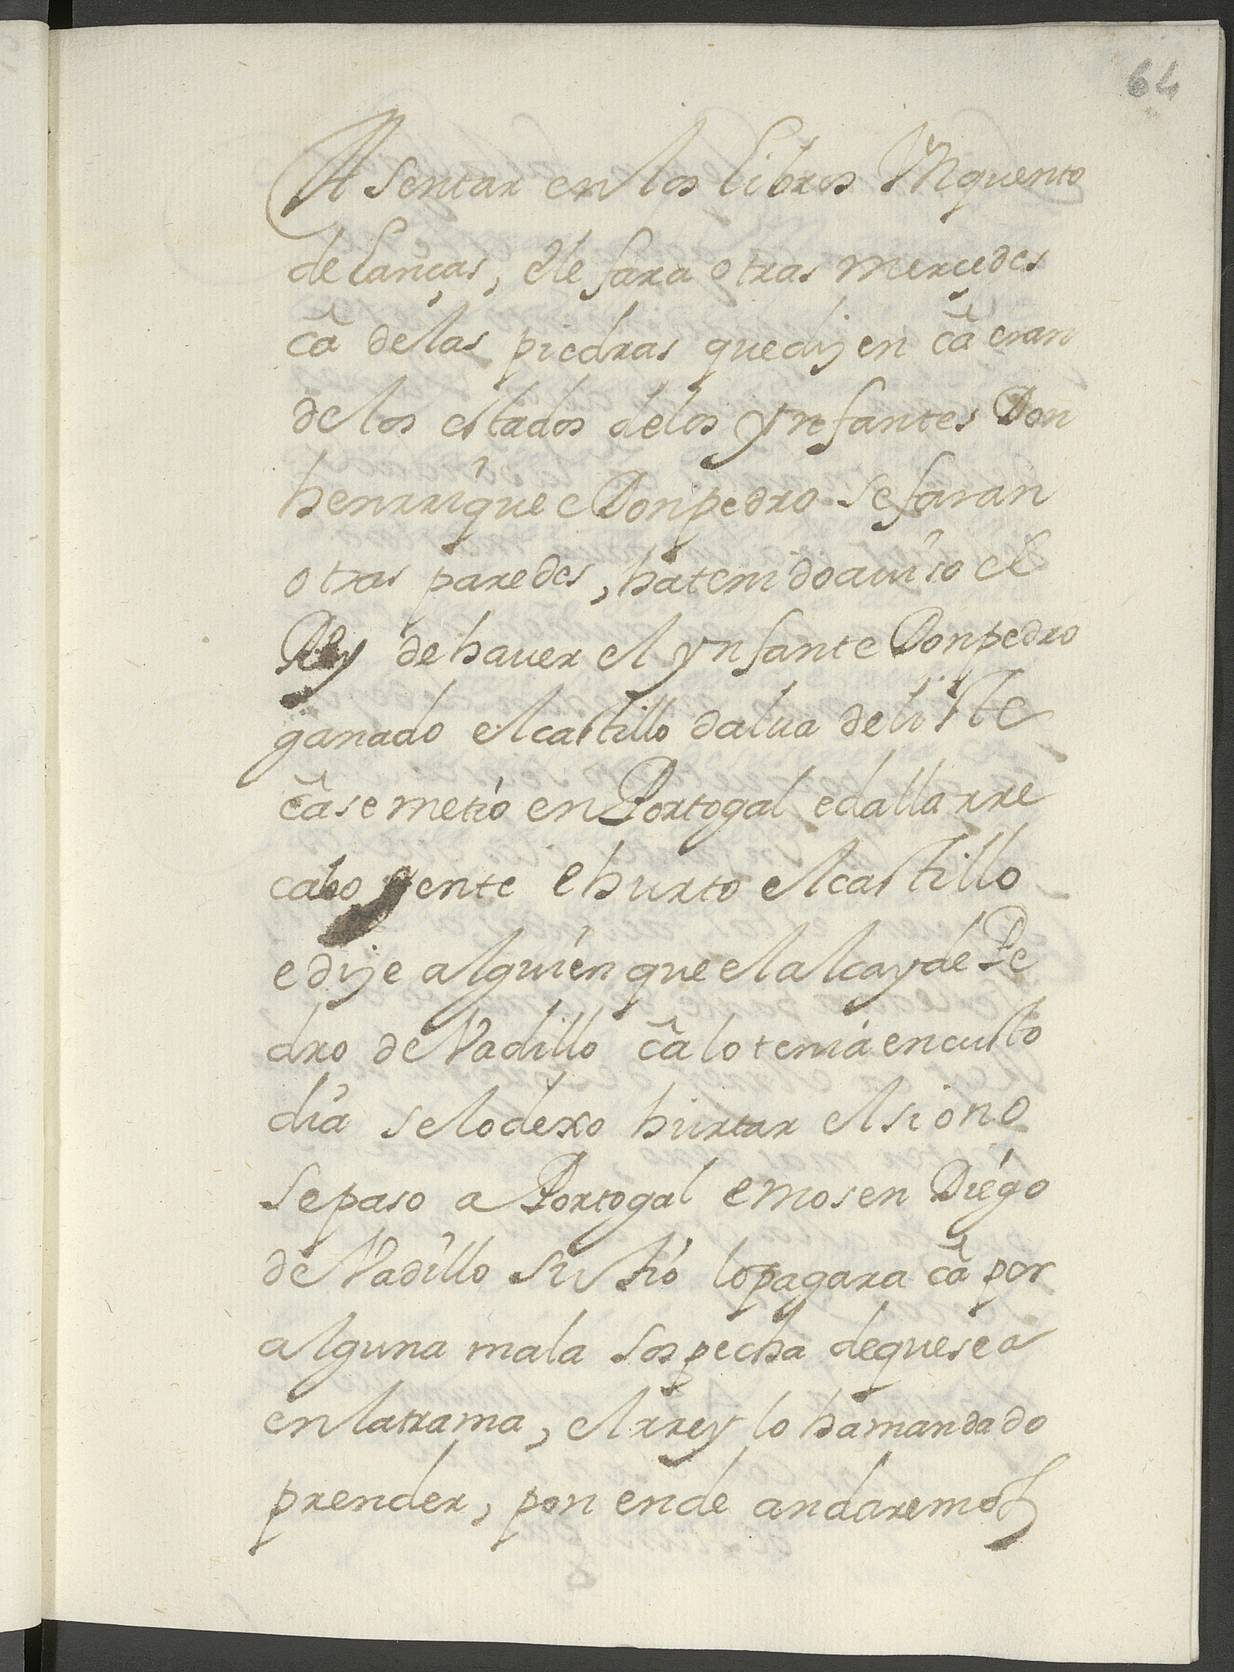 64
Asentar en los libros Mi quento
de lanças, ele fara otras mercedes
câ de las piedras que dijen câ eran
de los estados de los ynfantes Don
henrrique e Don pedro se faran
otras paredes, ha tenido auiso el
Rey de hauer el ynfante Don pedro
ganado el castillo dalua de liste
câ se metió en Portogal e dalla rre
cabo gente e hurto el castillo
e dije alguien que el alcayde Pe
dro de Vadillo câ lo tenia en custo
dia se lo dexo hurtar el si o no
se paso a Portogal e mosen Diégo
de Vadillo su tió lo pagara câ por
alguna mala sospecha de que sea
en la trama, el rrey lo ha mandado
prender, por ende andaremos